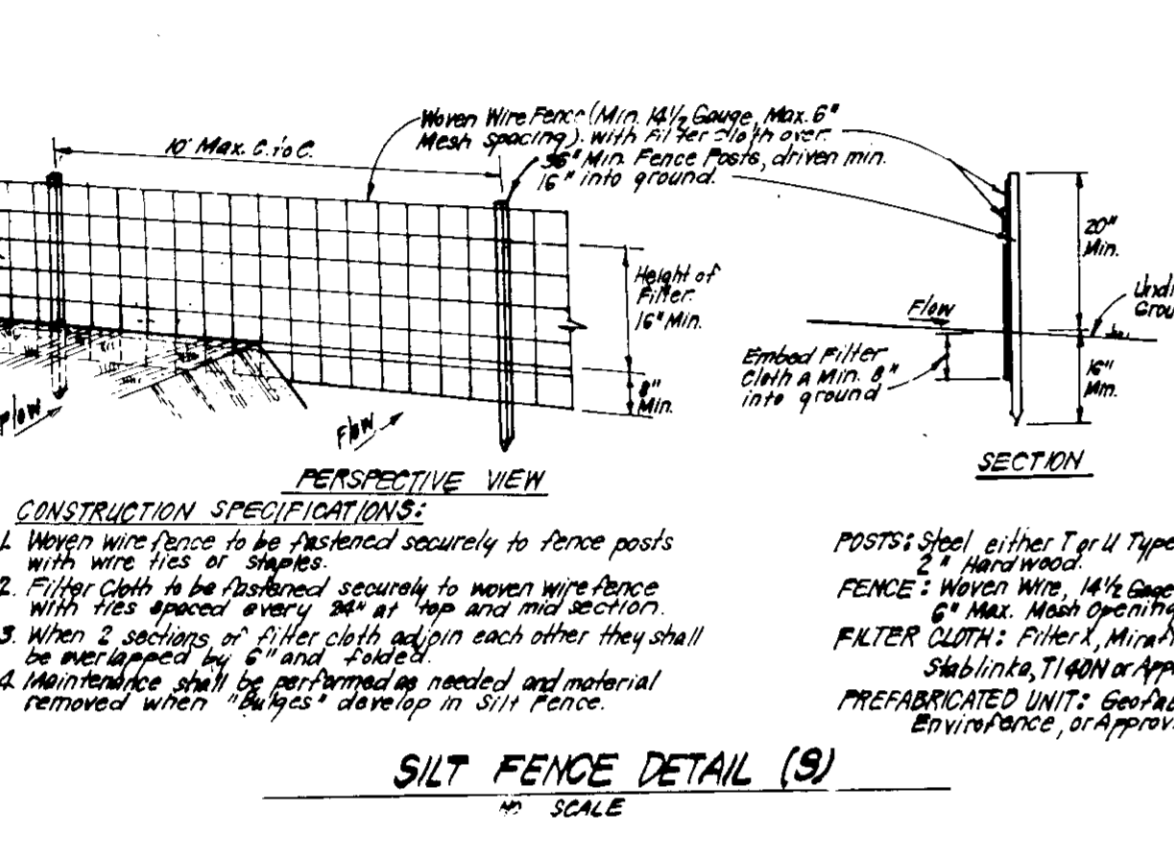 Woven Wire Fence (Min. 14½ Gauge, Max. 6"
Mesh Spacing). with Filter Cloth over.
10' Max. C. to C.
36" Min. Fence Posts, driven min.
16" into ground.
Height of
Filter.
16" Min.
8"
Min.
Flow
Flow
PERSPECTIVE VIEW
20"
Min.
Flow
Embed Filter
Cloth a Min. 8"
into ground
16"
Min.
SECTION
CONSTRUCTION SPECIFICATIONS:
1. Woven wire fence to be fastened securely to fence posts
with wire ties or staples.
2. Filter Cloth to be fastened securely to woven wire fence
with ties spaced every 24" at top and mid section.
3. When 2 sections of filter cloth adjoin each other they shall
be overlapped by 6" and folded.
4. Maintenance shall be performed as needed and material
removed when "Bulges" develop in Silt Fence.
POSTS: Steel either T or U Type
2" Hardwood.
FENCE: Woven Wire, 14½ Gage
6" Max. Mesh Opening
FILTER CLOTH: Filter X, Miraf
Stablinka, T140N or App
PREFABRICATED UNIT: Geofab
Envirofence, or Approv
SILT FENCE DETAIL (S)
NO SCALE